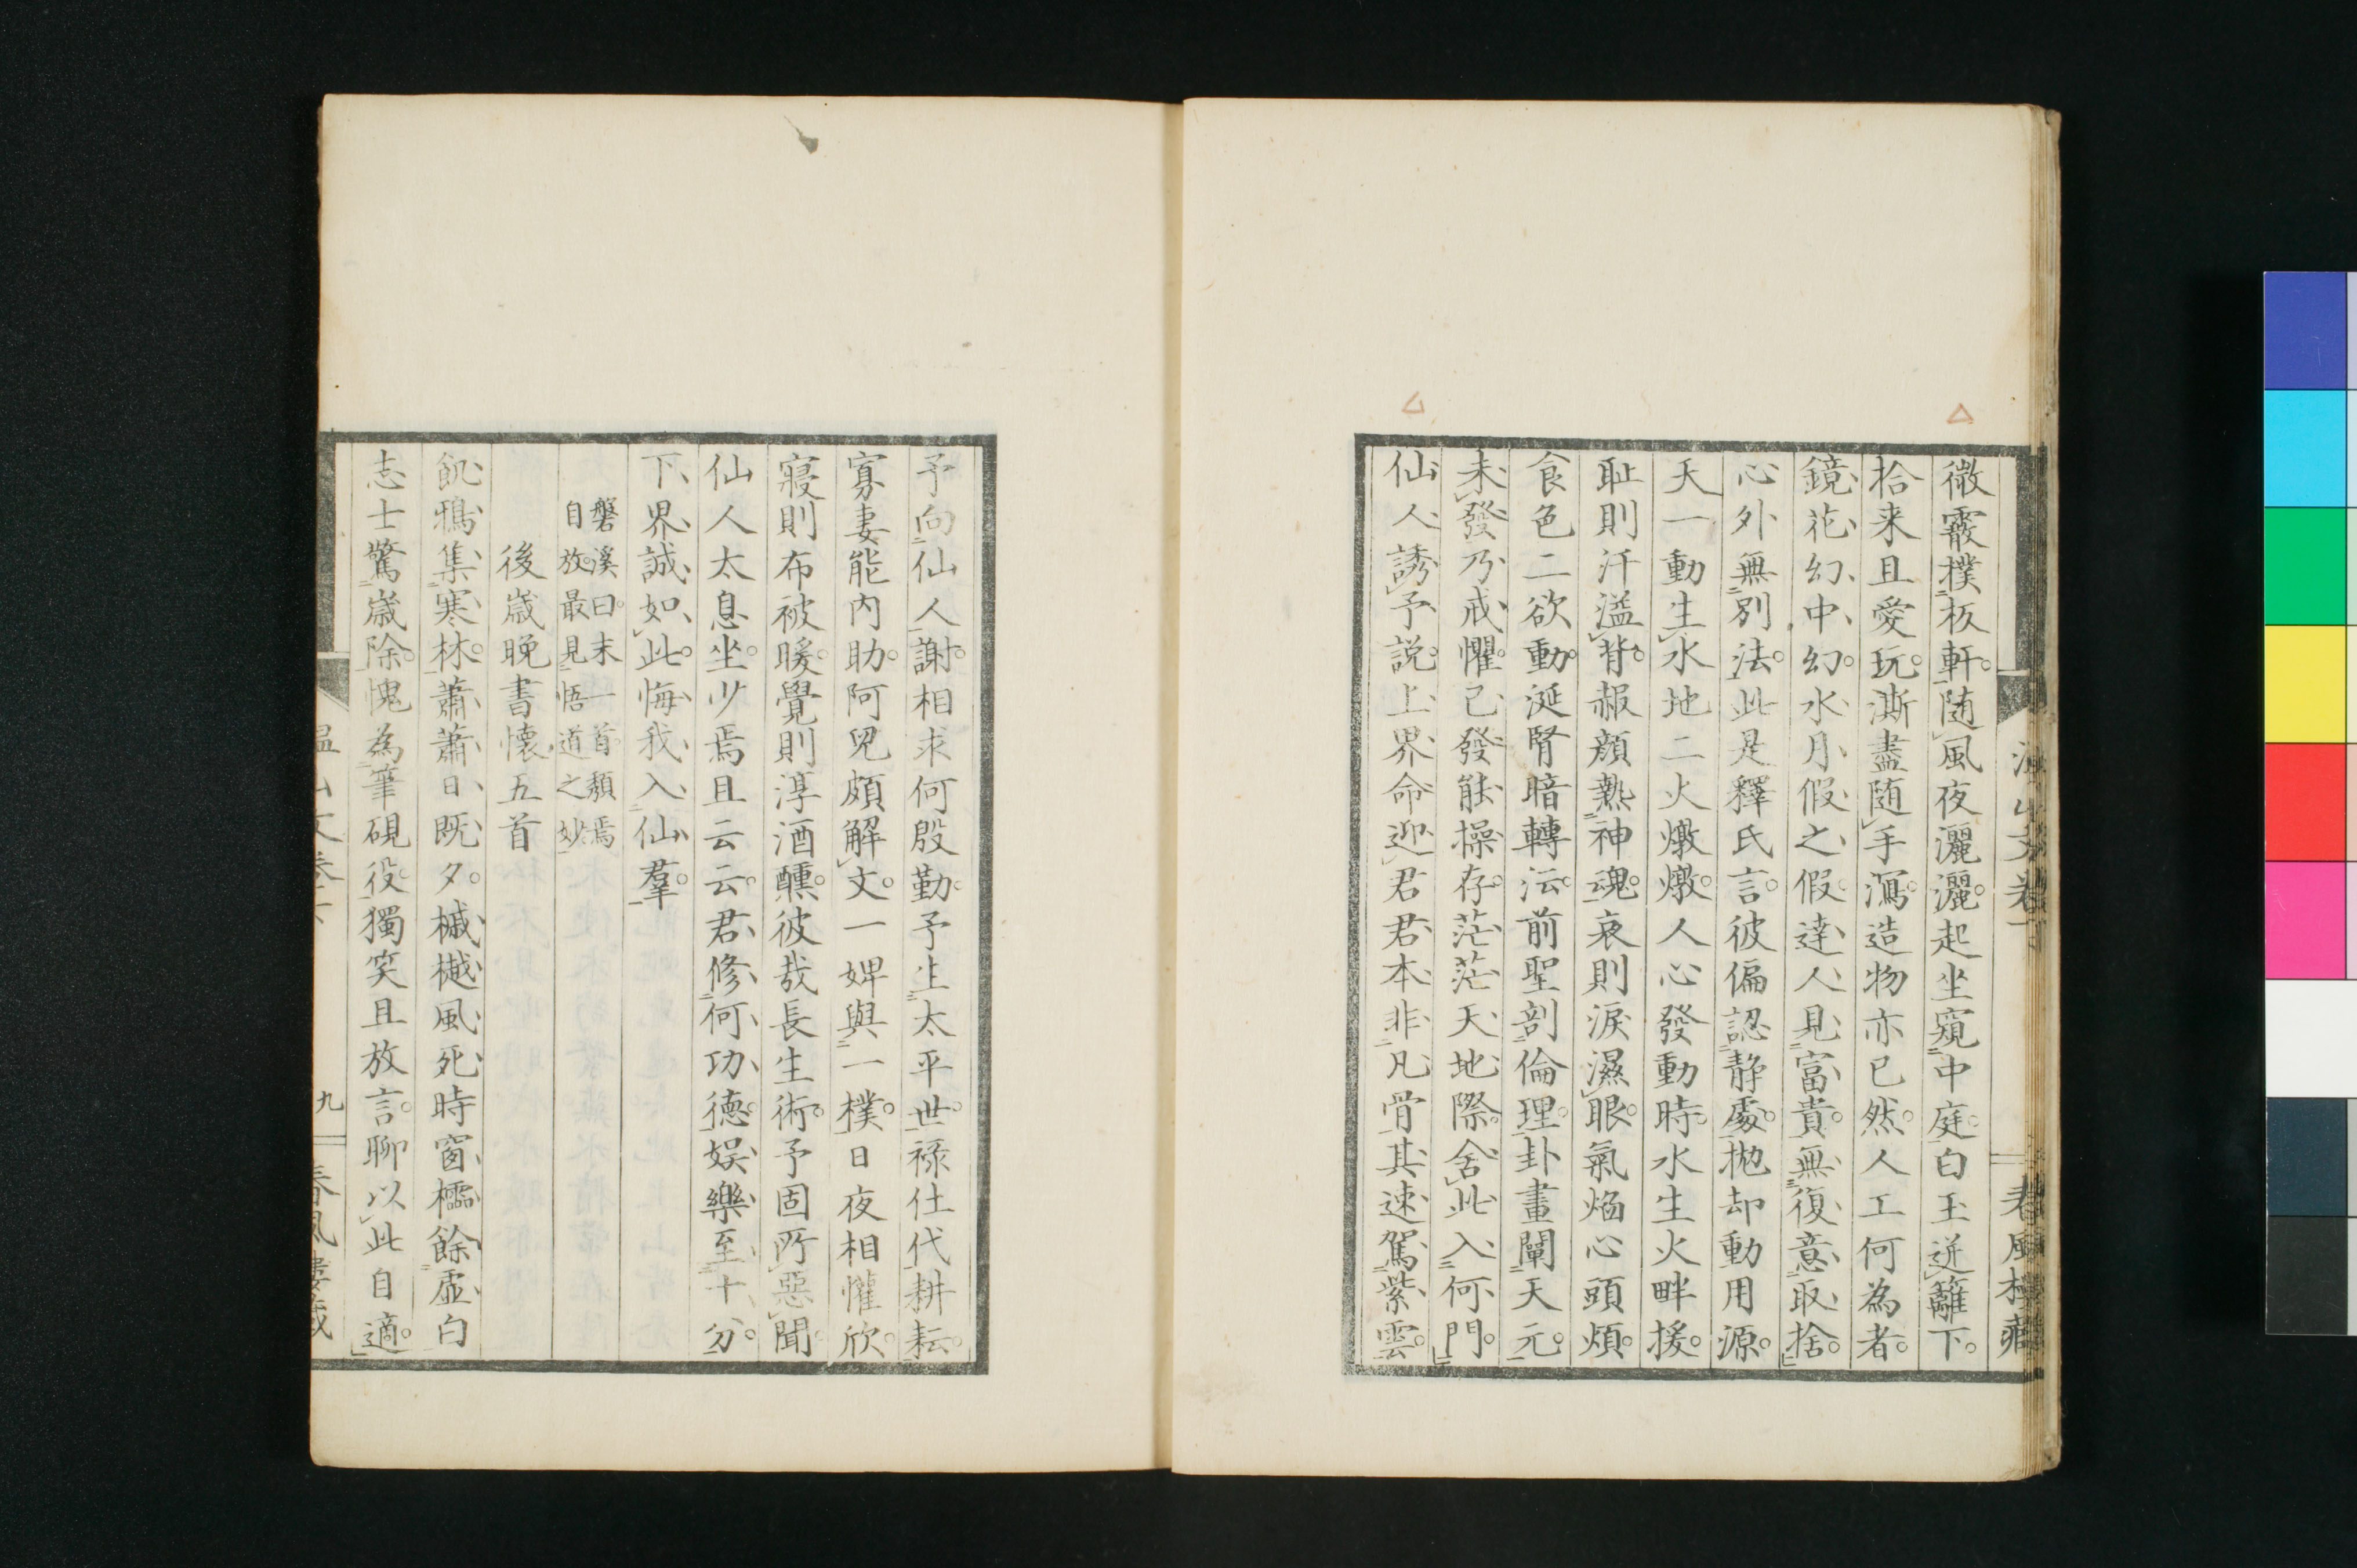 微霰撲板軒随風夜灑灑起坐窺中庭白玉迸籬下
拾来且愛玩澌盡随手瀉造物亦已然人工何為者
鏡花幻中幻水月假之假達人見富貴無復意取捨
心外無別法此是釋氏言彼偏認静處抛却動用源
天一動生水地二火燉燉人心發動時水生火畔援
耻則汗溢背赧顔熱神魂哀則涙濕眼氣焔心頭煩
食色二欲動涎腎暗轉沄前聖剖倫理卦畫闡天元
未發乃戒懼已發能操存茫茫天地際舍此入何門
仙人誘予説上界命迎君君本非凡骨其速駕紫雲
予向仙人謝相求何殷勤予生太平世禄仕代耕耘
寡妻能内助阿兒頗解文一婢與一樸日夜相懽欣
寢則布被暖覺則淳酒醺彼哉長生術予固所惡聞
仙人太息坐少焉且云云君修何功德娯樂至十分
下界誠如此悔我入仙羣
磐溪曰末一首頽焉
自放最見悟道之妙
後歳晩書懷五首
飢鴉集寒林蕭蕭日既夕槭槭風死時窗櫺餘虚白
志士驚歳除愧為筆硯役獨笑且放言聊以此自適
九